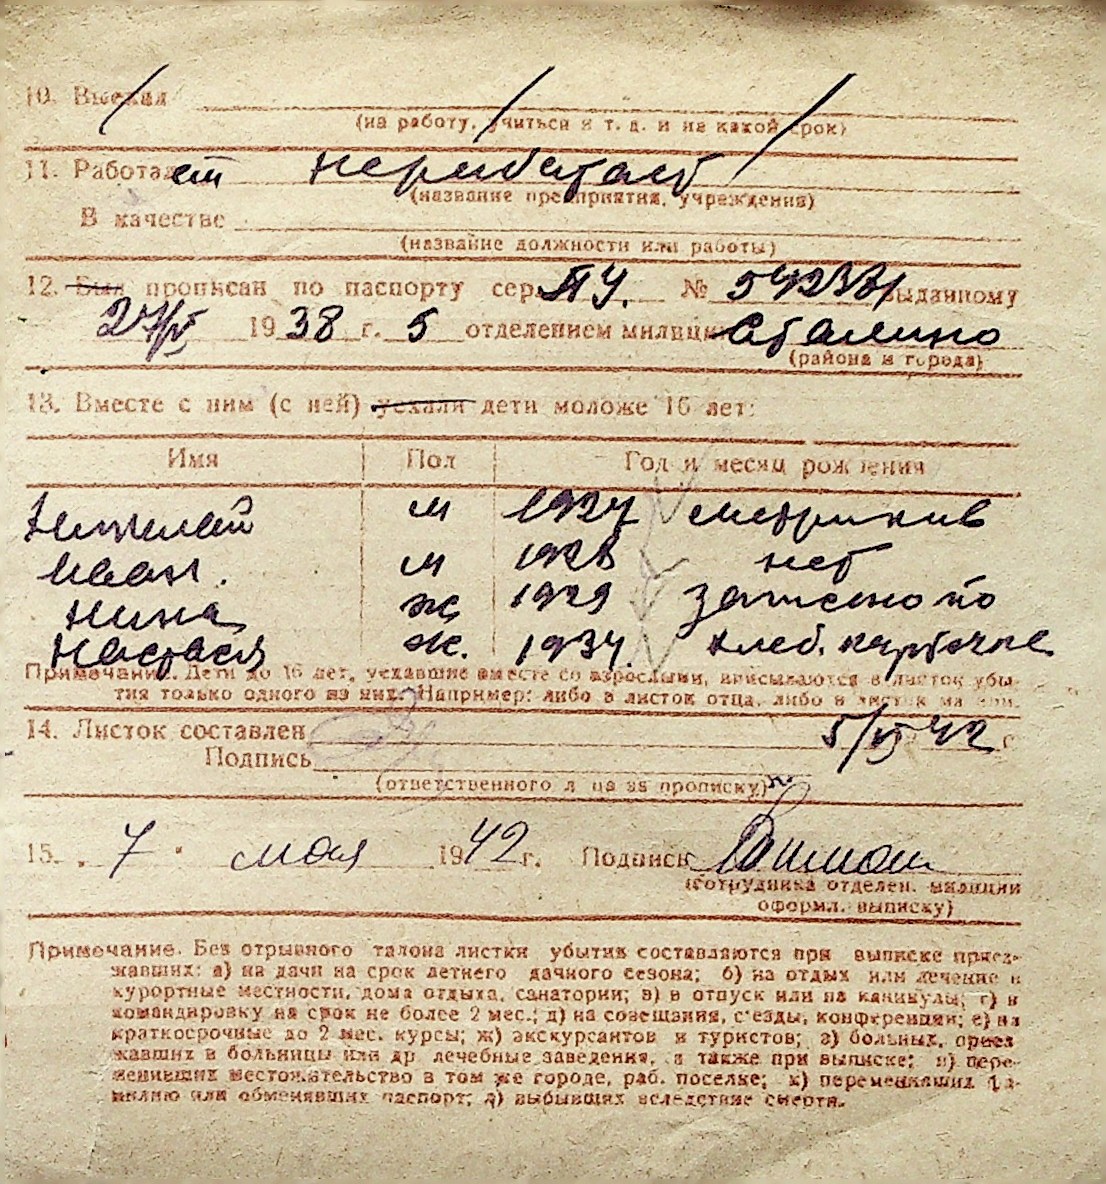 10. Выехал
(на работу, учиться и т. д. и на какой срок)
11. Работает не работает
(название предприятия, учреждения)
В качестве
(название должности или работы)
12. Был прописан по паспорту сер. ПУ. № выданному
1938 г. 5 отделением милиции Сталино
(района и города)
13. Вместе с ним (с ней) уехали дети моложе 16 лет:
Имя Пол Год и месяц рождения
Николай м 1927 метриков
Иван. м 1928 нет
Нина ж 1929 записано по
Настася ж. 1934. хлеб. карточке
Примечание. Дети до 16 лет, уехавшие вместе со взрослыми, вписываются в листок убы-
тия только одного из них. Например: либо в листок отца, либо в листок матери.
14. Листок составлен 5/V 42 г
Подпись
(ответственного лица за прописку)
15. „ 7 " мая 1942 г. Подпись
(сотрудника отделен. милиции
оформл. выписку)
Примечание. Без отрывного талона листки убытия составляются при выписке приез-
жавших: а) на дачи на срок летнего дачного сезона; б) на отдых или лечение в
курортные местности, дома отдыха, санатории; в) в отпуск или на каникулы; г) в
командировку на срок не более 2 мес.; д) на совещания, с'езды, конференции; е) на
краткосрочные до 2 мес. курсы; ж) экскурсантов и туристов; з) больных, приез
жавших в больницы или др. лечебные заведения, а также при выписке; и) пере-
менивших местожительство в том же городе, раб. поселке; к) переменивших фа-
милию или обменявших паспорт; л) выбывших вследствие смерти.